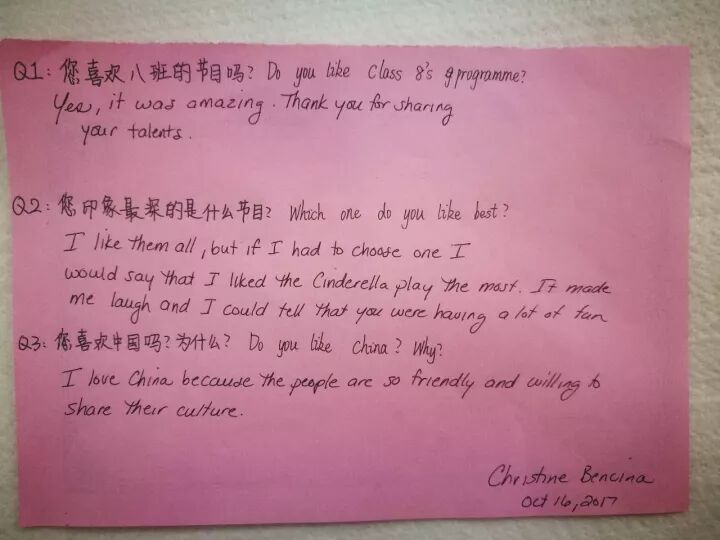 Q1: 您喜欢八班的节目吗? Do you like Class 8's programme?
Yes, it was amazing. Thank you for sharing
your talents.
Q2: 您印象最深的是什么节目? Which one do you like best?
I like them all, but if I had to choose one I
would say that I liked the Cinderella play the most. It made
me laugh and I could tell that you were having a lot of fun
Q3: 您喜欢中国吗? 为什么? Do you like China? Why?
I love China because the people are so friendly and willing to
share their culture.
Christine Bencina
Oct 16, 2017